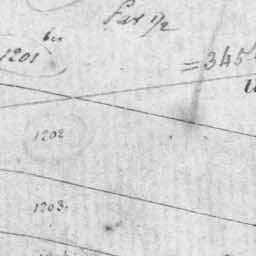 Par 1/2
1201 bis
= 345
1202
1203.